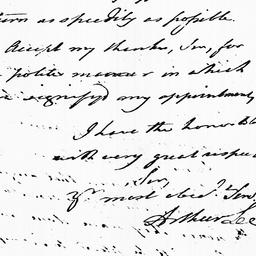 turn as speedily as possible.
Accept my thanks, Sir, for
polite manner in which
signifyd my appointment
I have the honor to
with very great respec
Sir,
Yr most obedt Ser
Arthur Lee